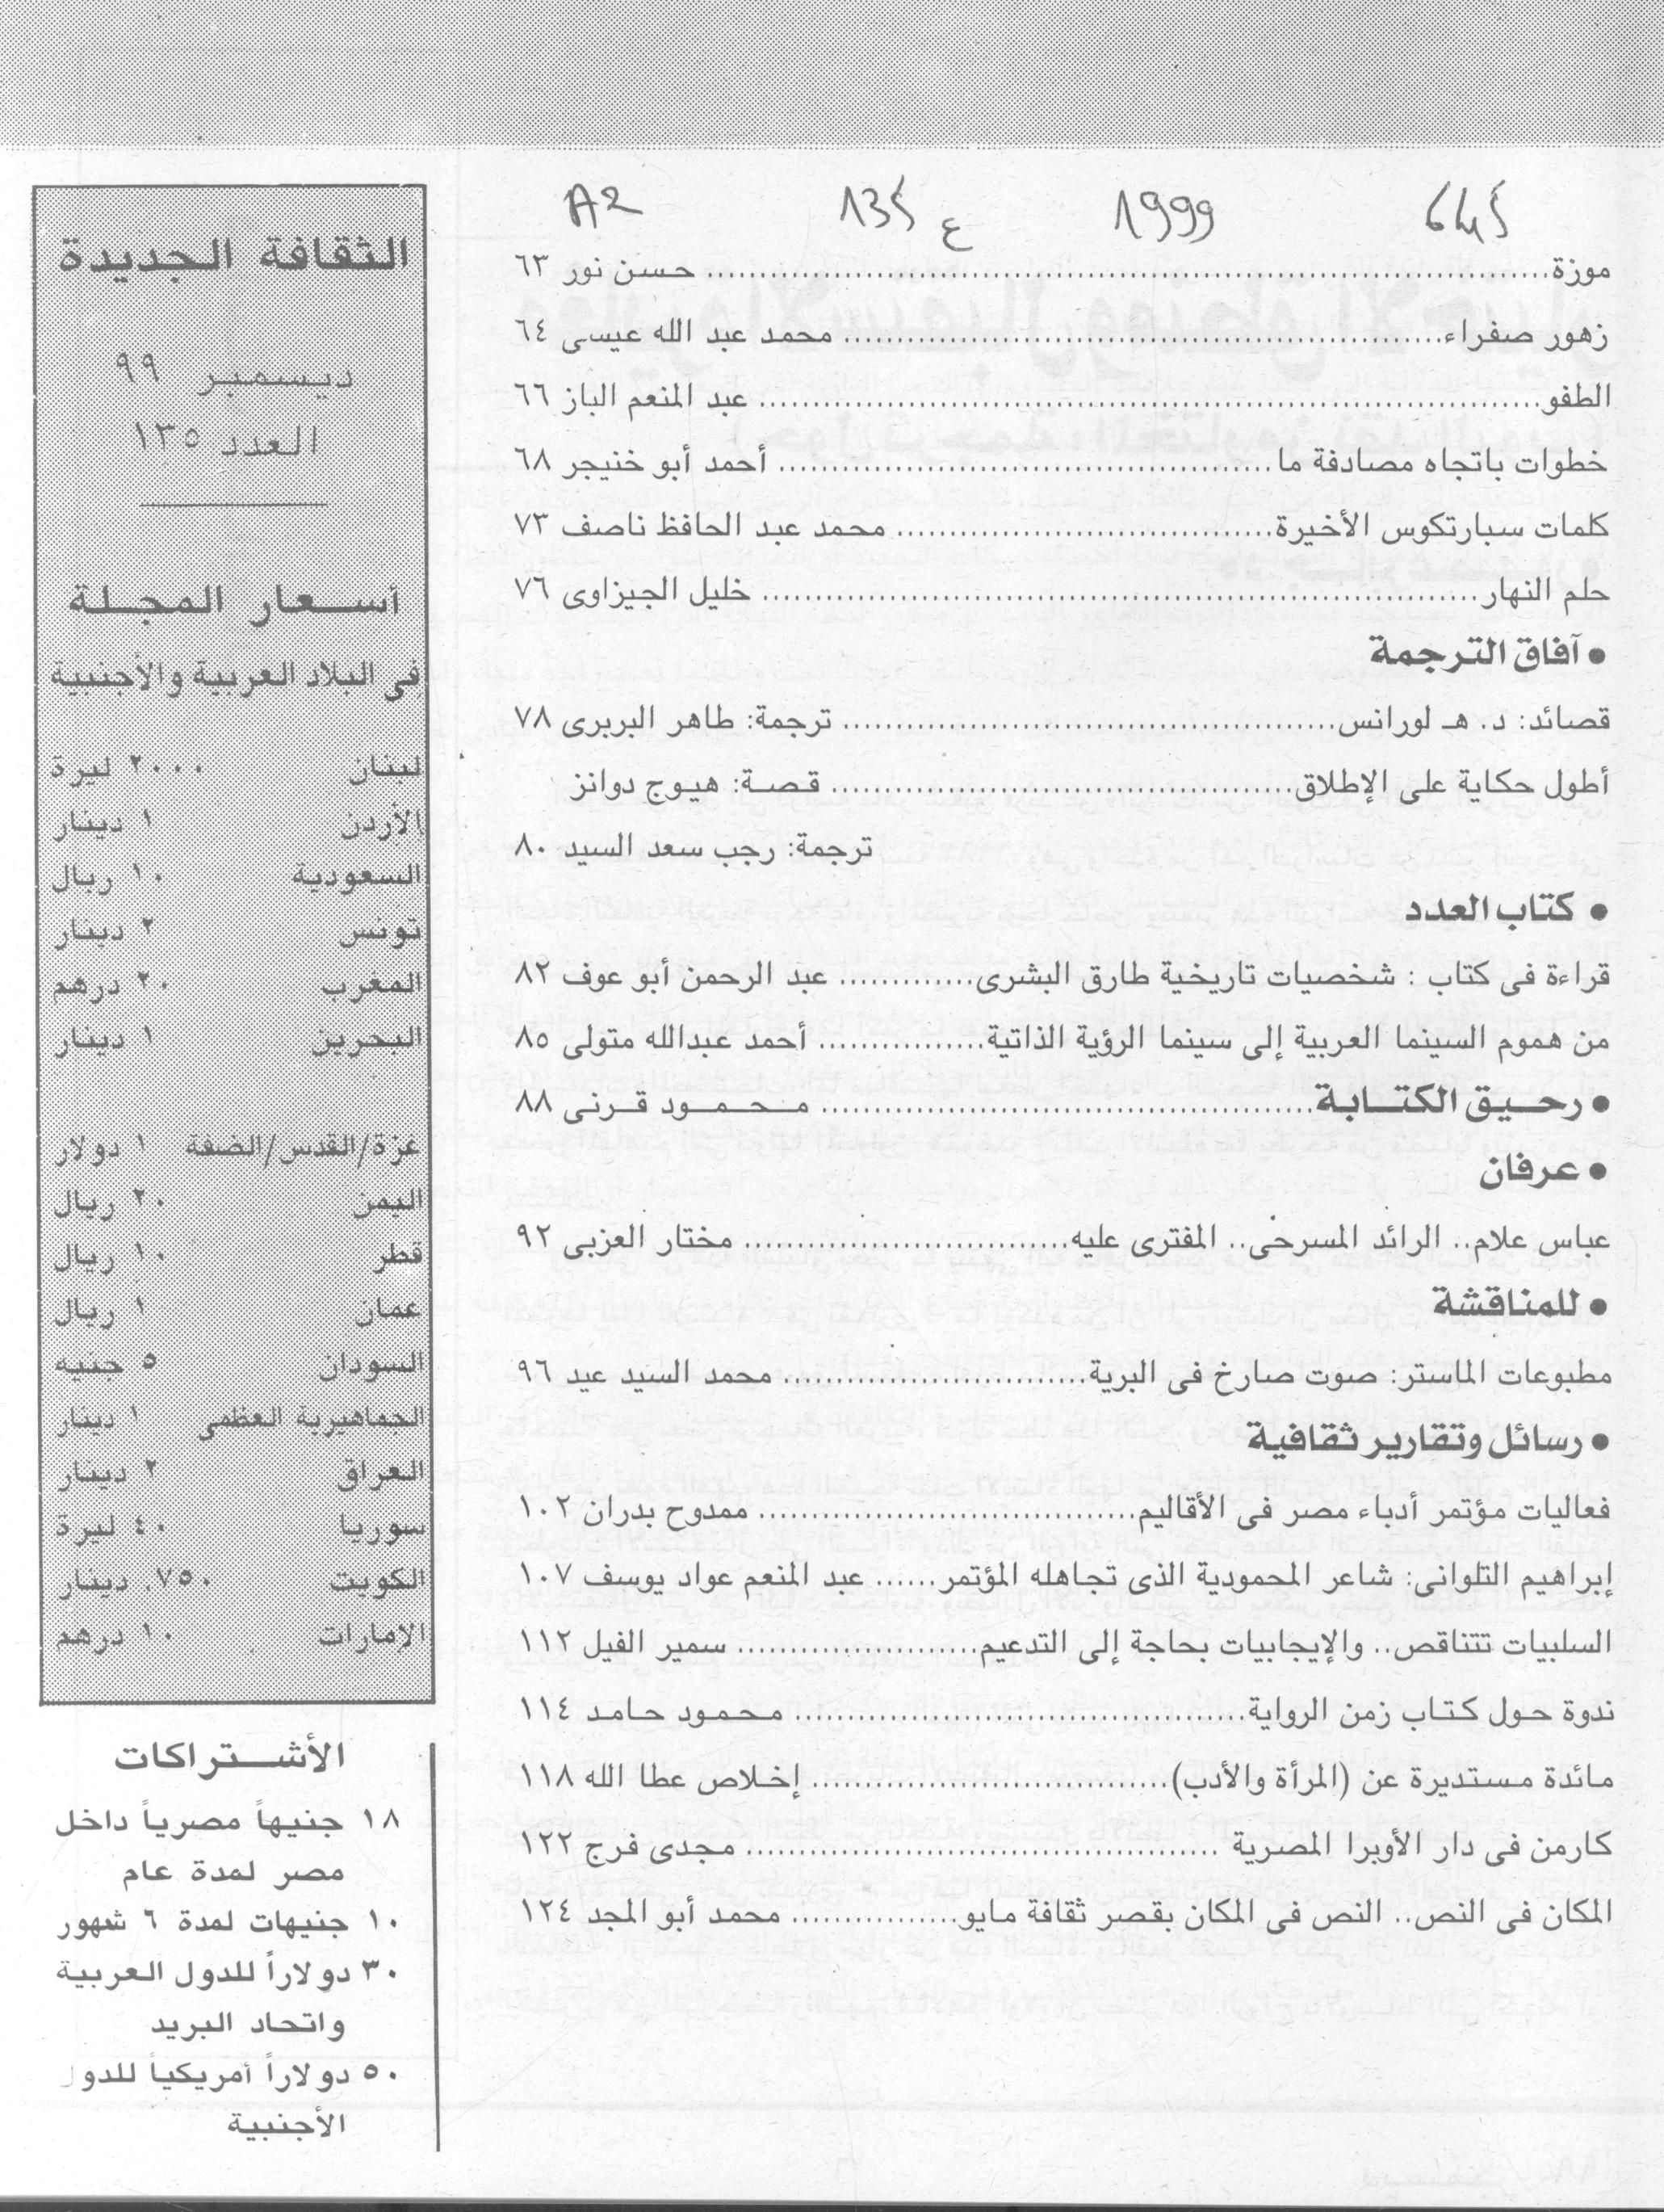 A2 135 ع 1999
موزة........ حسن نور ٦٣
زهور صفراء........ محمد عبد الله عيسى ٦٤
الطفو........ عبد المنعم الباز ٦٦
خطوات باتجاه مصادفة ما........ أحمد أبو خنيجر ٦٨
كلمات سبارتكوس الأخيرة........ محمد عبد الحافظ ناصف ٧٣
حلم النهار........ خليل الجيزاوى ٧٦
● آفاق الترجمة
قصائد: د. هـ لورانس........ ترجمة: طاهر البربرى ٧٨
أطول حكاية على الإطلاق........ قصة: هيوج دوانز
ترجمة: رجب سعد السيد ٨٠
● كتاب العدد
قراءة فى كتاب : شخصيات تاريخية طارق البشرى........ عبد الرحمن أبو عوف ٨٢
من هموم السينما العربية إلى سينما الرؤية الذاتية........ أحمد عبدالله متولى ٨٥
● رحيق الكتابة........ محمود قرنى ٨٨
● عرفان
عباس علام.. الرائد المسرحى.. المفترى عليه........ مختار العزبى ٩٢
● للمناقشة
مطبوعات الماستر: صوت صارخ فى البرية........ محمد السيد عيد ٩٦
● رسائل وتقارير ثقافية
فعاليات مؤتمر أدباء مصر فى الأقاليم........ ممدوح بدران ١٠٢
إبراهيم التلوانى: شاعر المحمودية الذى تجاهله المؤتمر...... عبد المنعم عواد يوسف ١٠٧
السلبيات تتناقص.. والإيجابيات بحاجة إلى التدعيم........ سمير الفيل ١١٢
ندوة حول كتاب زمن الرواية........ محمود حامد ١١٤
مائدة مستديرة عن (المرأة والأدب)........ إخلاص عطا الله ١١٨
كارمن فى دار الأوبرا المصرية ........ مجدى فرج ١٢٢
المكان فى النص.. النص فى المكان بقصر ثقافة مايو........ محمد أبو المجد ١٢٤
الثقافة الجديدة
ديسمبر ٩٩
العدد ١٣٥
أسعار المجلة
فى البلاد العربية والأجنبية
لبنان ٢٠٠٠ ليرة
الأردن ١ دينار
السعودية ١٠ ريال
تونس ٢ دينار
المغرب ٢٠ درهم
البحرين ١ دينار
غزة/القدس/الضفة ١ دولار
اليمن ٢٠ ريال
قطر ١٠ ريال
عمان ١ ريال
السودان ٥ جنيه
الجماهيرية العظمى ١ دينار
العراق ٢ دينار
سوريا ٤٠ ليرة
الكويت ٧٥٠, دينار
الإمارات ١٠ درهم
الأشتراكات
١٨ جنيهاً مصرياً داخل
مصر لمدة عام
١٠ جنيهات لمدة ٦ شهور
٣٠ دولاراً للدول العربية
واتحاد البريد
٥٠ دولاراً أمريكياً للدول
الأجنبية